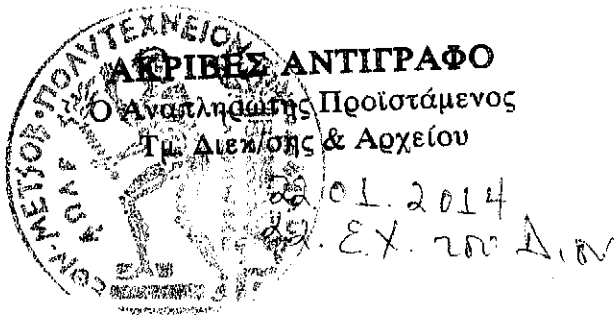 ΑΚΡΙΒΕΣ ΑΝΤΙΓΡΑΦΟ
Ο Αναπληρωτής Προϊστάμενος
Τμ. Διεκ/σης & Αρχείου
22.01.2014
ΜΕΤΣΟΒ
ΠΟΛΥΤΕΧΝΕΙΟΝ